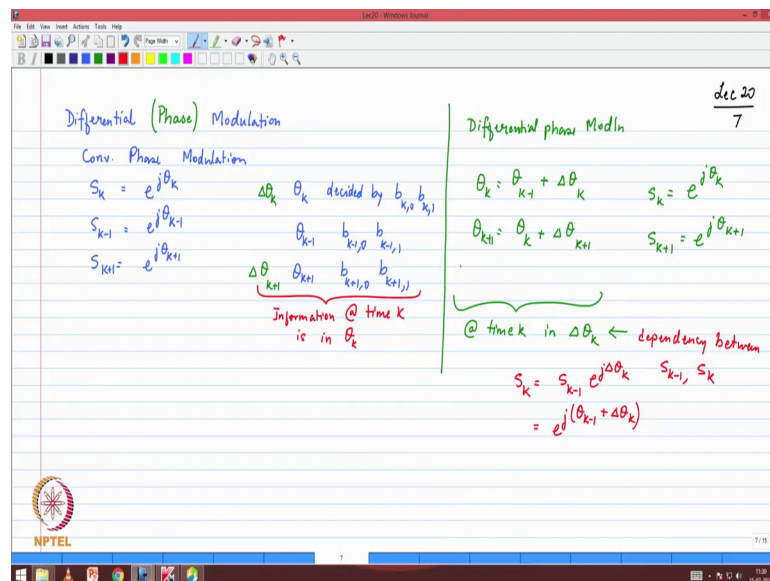 Lec20 - Windows Journal
File Edit View Insert Actions Tools Help
Page Width
B I
Lec 20
7
Differential (Phase) Modulation
Conv. Phase Modulation
S_k = e^{jθ_k}
Δθ_k θ_k decided by b_{k,0} b_{k,1}
S_{k-1} = e^{jθ_{k-1}}
θ_{k-1} b_{k-1,0} b_{k-1,1}
S_{k+1} = e^{jθ_{k+1}}
Δθ_{k+1} θ_{k+1} b_{k+1,0} b_{k+1,1}
Information @ time k
is in θ_k
Differential phase Modln
θ_k = θ_{k-1} + Δθ_k S_k = e^{jθ_k}
θ_{k+1} = θ_k + Δθ_{k+1} S_{k+1} = e^{jθ_{k+1}}
@ time k in Δθ_k ← dependency between
S_k = S_{k-1} e^{jΔθ_k} S_{k-1}, S_k
= e^{j(θ_{k-1} + Δθ_k)}
NPTEL
7
7/15
11:20